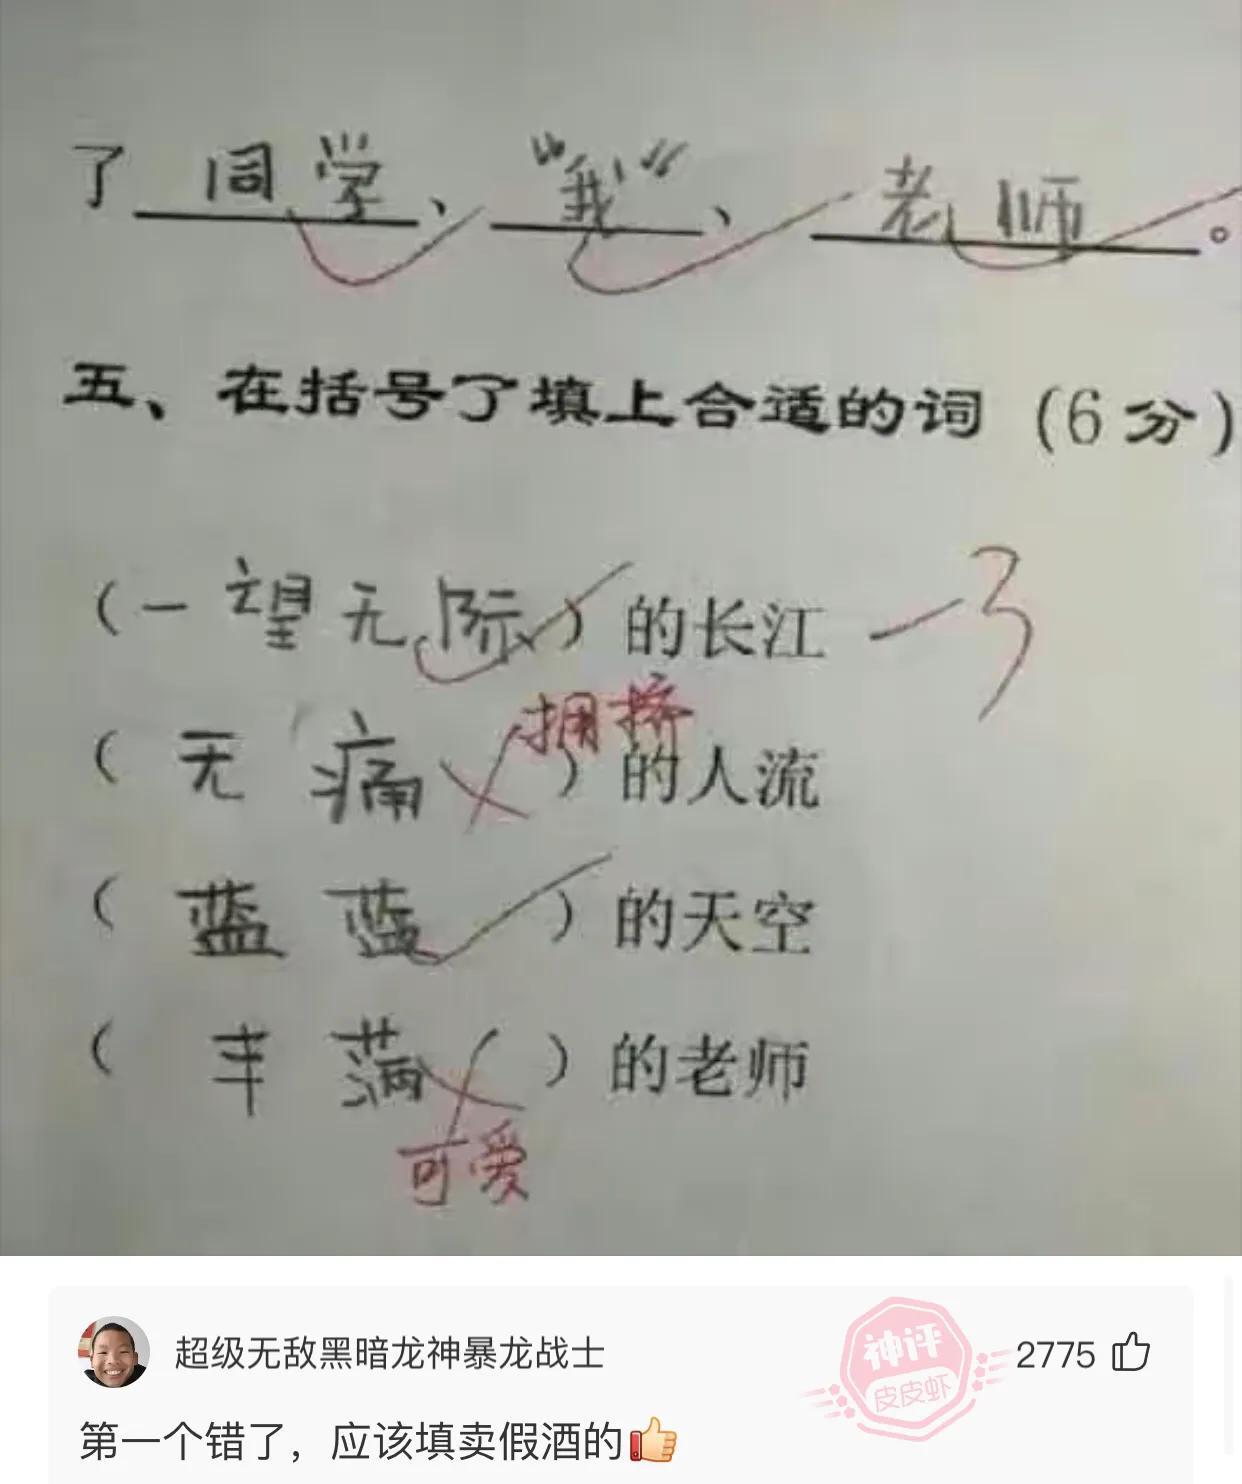 了 同学、"我"、老师。
五、在括号了填上合适的词（6分）
（一望无际）的长江 -3
拥挤
（无痛）的人流
（蓝蓝）的天空
（丰满）的老师
可爱
超级无敌黑暗龙神暴龙战士
神评
皮皮虾
2775
第一个错了，应该填卖假酒的👍